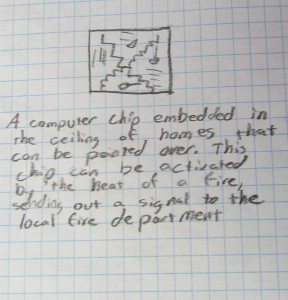 A computer chip embedded in
the ceiling of homes that
can be painted over. This
chip can be activated
by the heat of a fire,
sending out a signal to the
local fire department